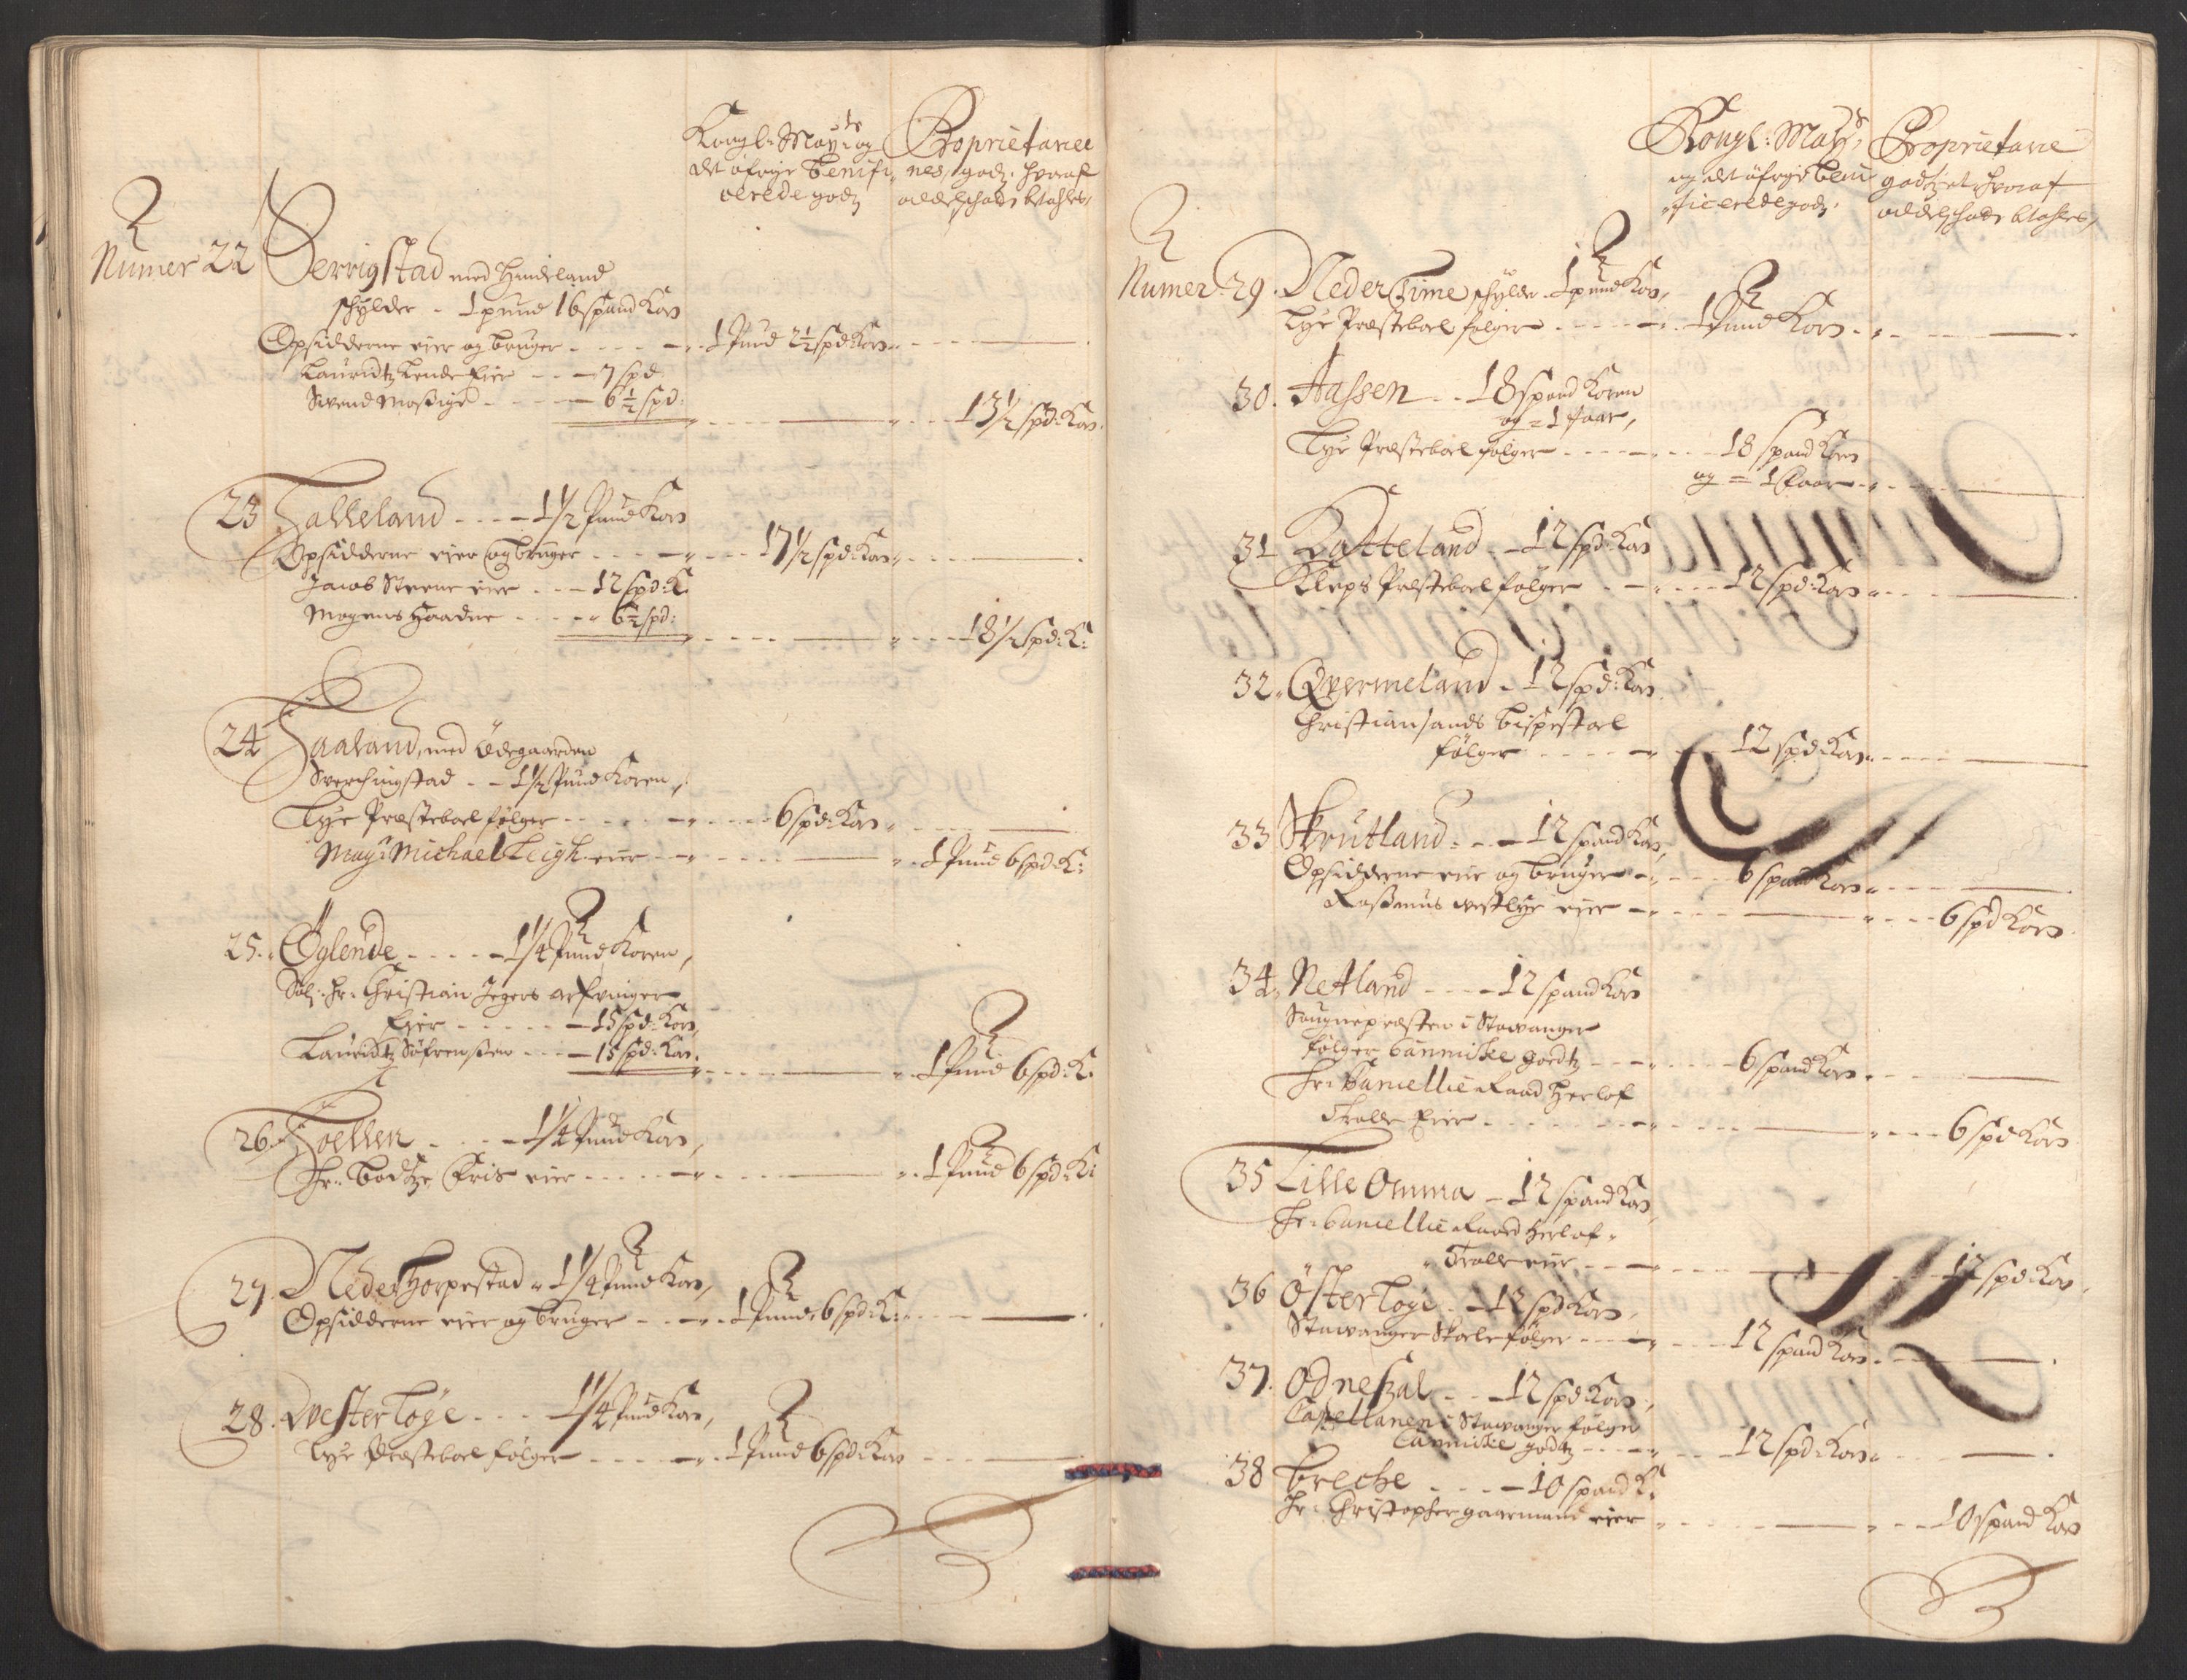 Kongl: Mayts og
det øfrige Benifi-
cerede godtz
Proprietarier
nes godtz hvoraf
oddelschatt betahles,
Numer 22 Serrigstad med Hinderland
schylder - 1 pund 16 spand Korn
Opsidderne eier og bruger - 1 Pund 2½ spd: Korn
Lauridtz Lende Eier - 7 spd
Svend Mossige - 6½ spd:
13½ spd: Korn
23 Talleland - 1½ Pund Korn
Opsidderne eier og bruger - 17½ spd: Korn
Jacob Steene eier - 12 spd: K
Mogens Haadne - 6½ spd:
18½ spd: K:
24 Taaland, med Ødegaarden
Sverchingstad - 1½ Pund Koren,
Lye Præsteboel følger - 6 spd: Korn
May: Michael Leigh eier - 1 Pund 6 spd: K:
25. Øglende - 1¼ Pund Koren,
Sal: Hr: Christian Jegers arfvinger
Eier - 15 spd: Korn,
Lauridtz Søfrenssen - 15 spd: Korn.
1 Pund 6 spd: K:
26. Toellen - 1¼ Pund Korn,
Hr: Bodtze Friis eier - 1 Pund 6 spd: K:
27. Neder Horpestad - 1¼ Pund Korn,
Opsidderne eier og bruger - 1 Pund 6 spd: K:
28. Wester Løge - 1¼ Pund Korn,
Lye Præsteboel følger - 1 Pund 6 spd: Korn
Kongl: Mays,
og det øfrige Beni
ficerede godtz.
Proprietarie
godtzet hvoraf
oddelschatt betahles,
Numer 29. Neder Time schylder - 1 pund Korn,
Lye Præsteboel følger - 1 Pund Korn
30. Aassen - 18 spand Koren
og = 1 faar,
Lye Præsteboel følger - 18 spand Korn
og = 1 Faar
31 Katteland - 12 spd: Korn
Kleps Præsteboel følger - 12 spd: Korn
32. Qvermeland - 12 spd: Korn
Christiansands Bispestoel
følger - 12 spd: Korn
33 Skrutland - 12 spand Korn,
Opsidderne eier og bruger - 6 spand Korn
Rassmus Vestlye eier - 6 spd Korn
34. Netland - 12 spand Korn
Sougnepræsten i Stavanger
følger Canniche goedtz - 6 spand Korn
Hr: Cancellie Raad Herlof
Trolle Eier - 6 spd Korn
35 Lille Omma - 12 spand Korn,
Hr: Cancellie Raad Herlof
Trolle eier - 12 spd: Korn
36 Øster Løge - 12 spd Korn,
Stavanger Skole følger - 12 spand Korn
37. Odneszal - 12 spd: Korn,
Capellanen i Stavanger følger
Canniche godtz - 12 spd: Korn
38 Breche - 10 spand K:
Hr: Christopher Gaarmand eier - 10 spand Korn